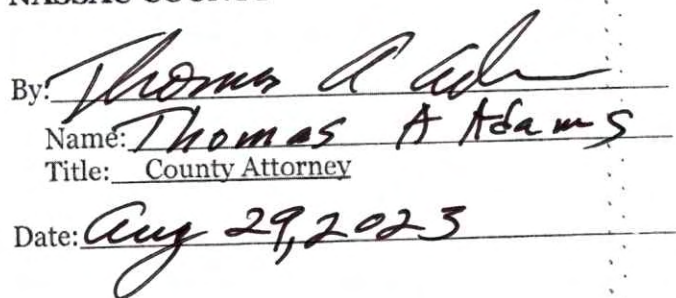 NASSAU COUNTY
By: Thomas A Adams
Name: Thomas A Adams
Title: County Attorney
Date: Aug 29, 2023